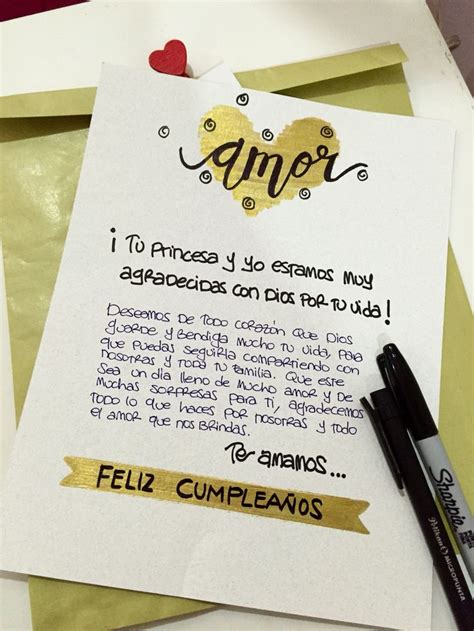 amor
¡ Tu princesa y yo estamos muy
agradecidas con Dios por tu vida !
Deseamos de todo corazón que Dios
guarde y bendiga mucho tu vida, para
que puedas seguirla compartiendo con
nosotras y toda tu familia. Que este
sea un día lleno de mucho amor y de
muchas sorpresas para ti, agradecemos
todo lo que haces por nosotras y todo
el amor que nos brindas.
Te amamos...
FELIZ CUMPLEAÑOS
Sharpie
Pelikan MICROPUNTA